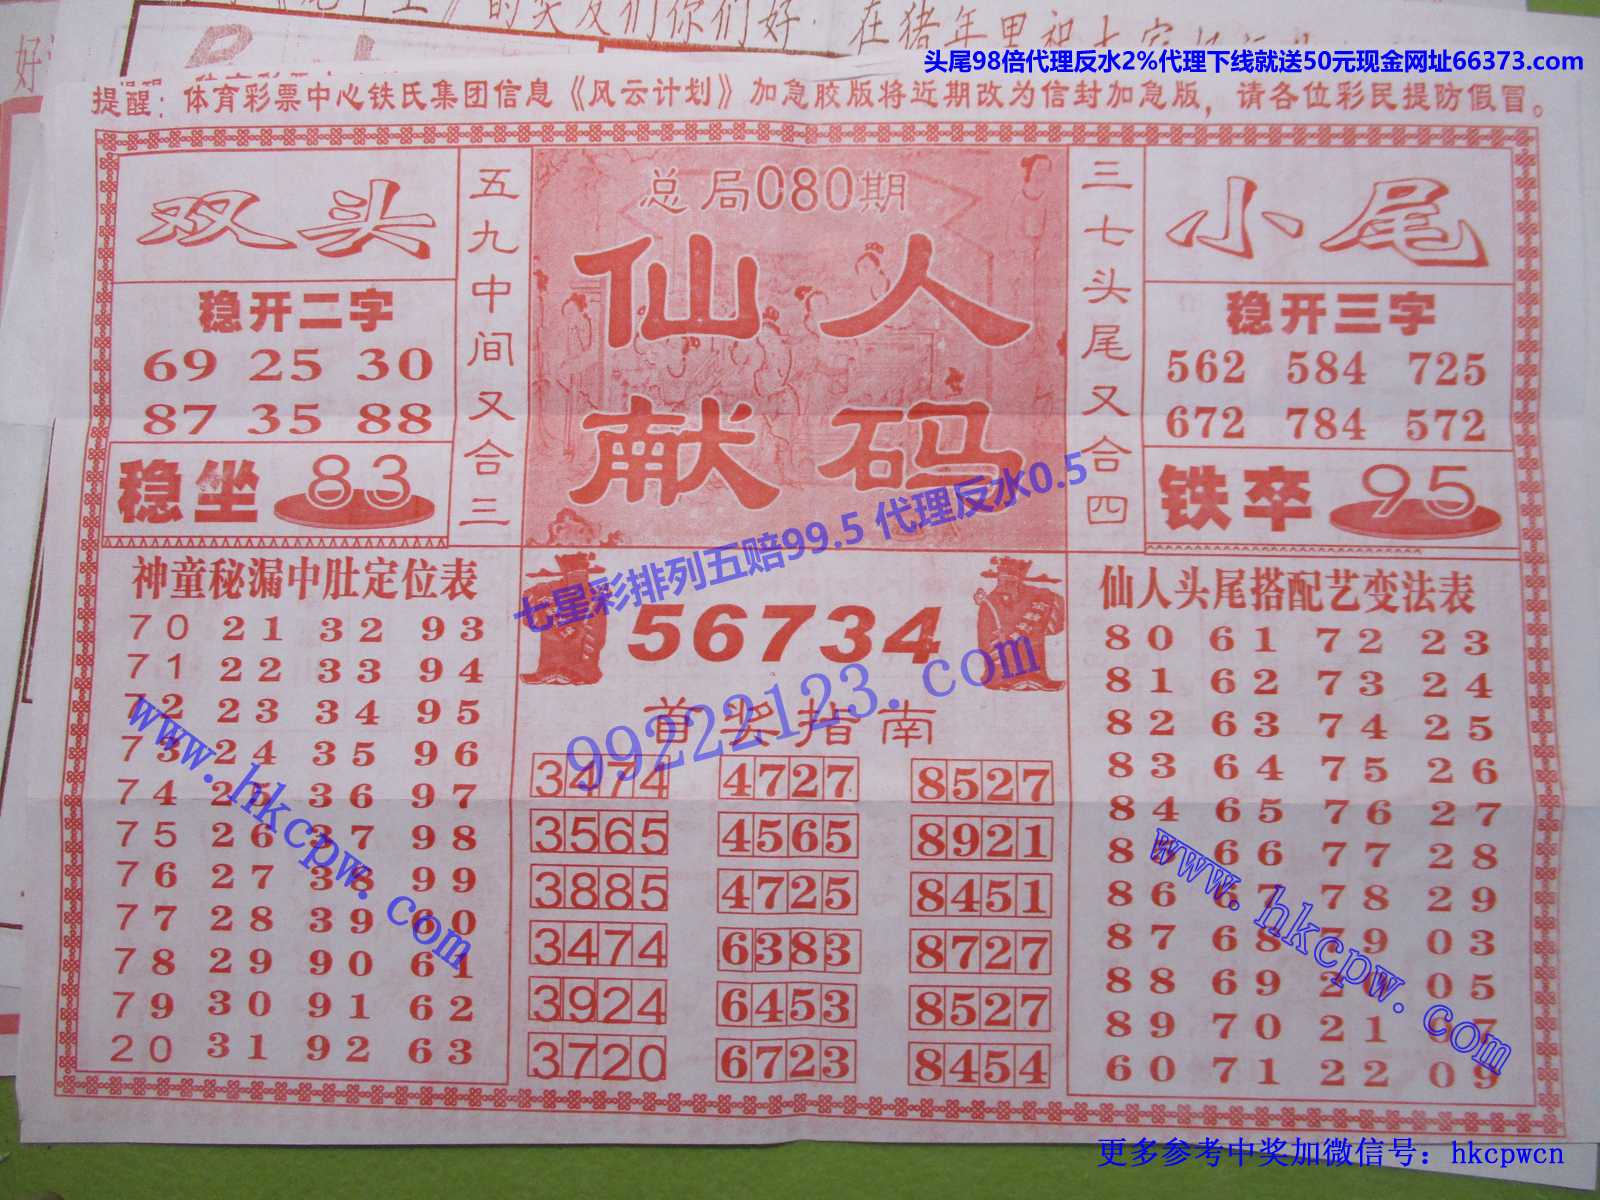 的奖友们你们好
在猪年里祝大家
头尾98倍代理反水2%代理下线就送50元现金网址66373.com
提醒：体育彩票中心铁氏集团信息《风云计划》加急胶版将近期改为信封加急版，请各位彩民提防假冒。
双头
稳开二字
69 25 30
87 35 88
稳坐 83
五九中间又合三
总局080期
仙人
献码
三七头尾又合四
小尾
稳开三字
562 584 725
672 784 572
铁卒 95
七星彩排列五赔99.5 代理反水0.5
神童秘漏中肚定位表
70 21 32 93
71 22 33 94
72 23 34 95
73 24 35 96
74 25 36 97
75 26 37 98
76 27 38 99
77 28 39 60
78 29 90 61
79 30 91 62
20 31 92 63
www.hkcpw.com
56734
99222123.com
首奖指南
3474 4727 8527
3565 4565 8921
3885 4725 8451
3474 6383 8727
3924 6453 8527
3720 6723 8454
仙人头尾搭配艺变法表
80 61 72 23
81 62 73 24
82 63 74 25
83 64 75 26
84 65 76 27
85 66 77 28
86 67 78 29
87 68 79 03
88 69 20 05
89 70 21 07
60 71 22 09
www.hkcpw.com
更多参考中奖加微信号：hkcpwcn